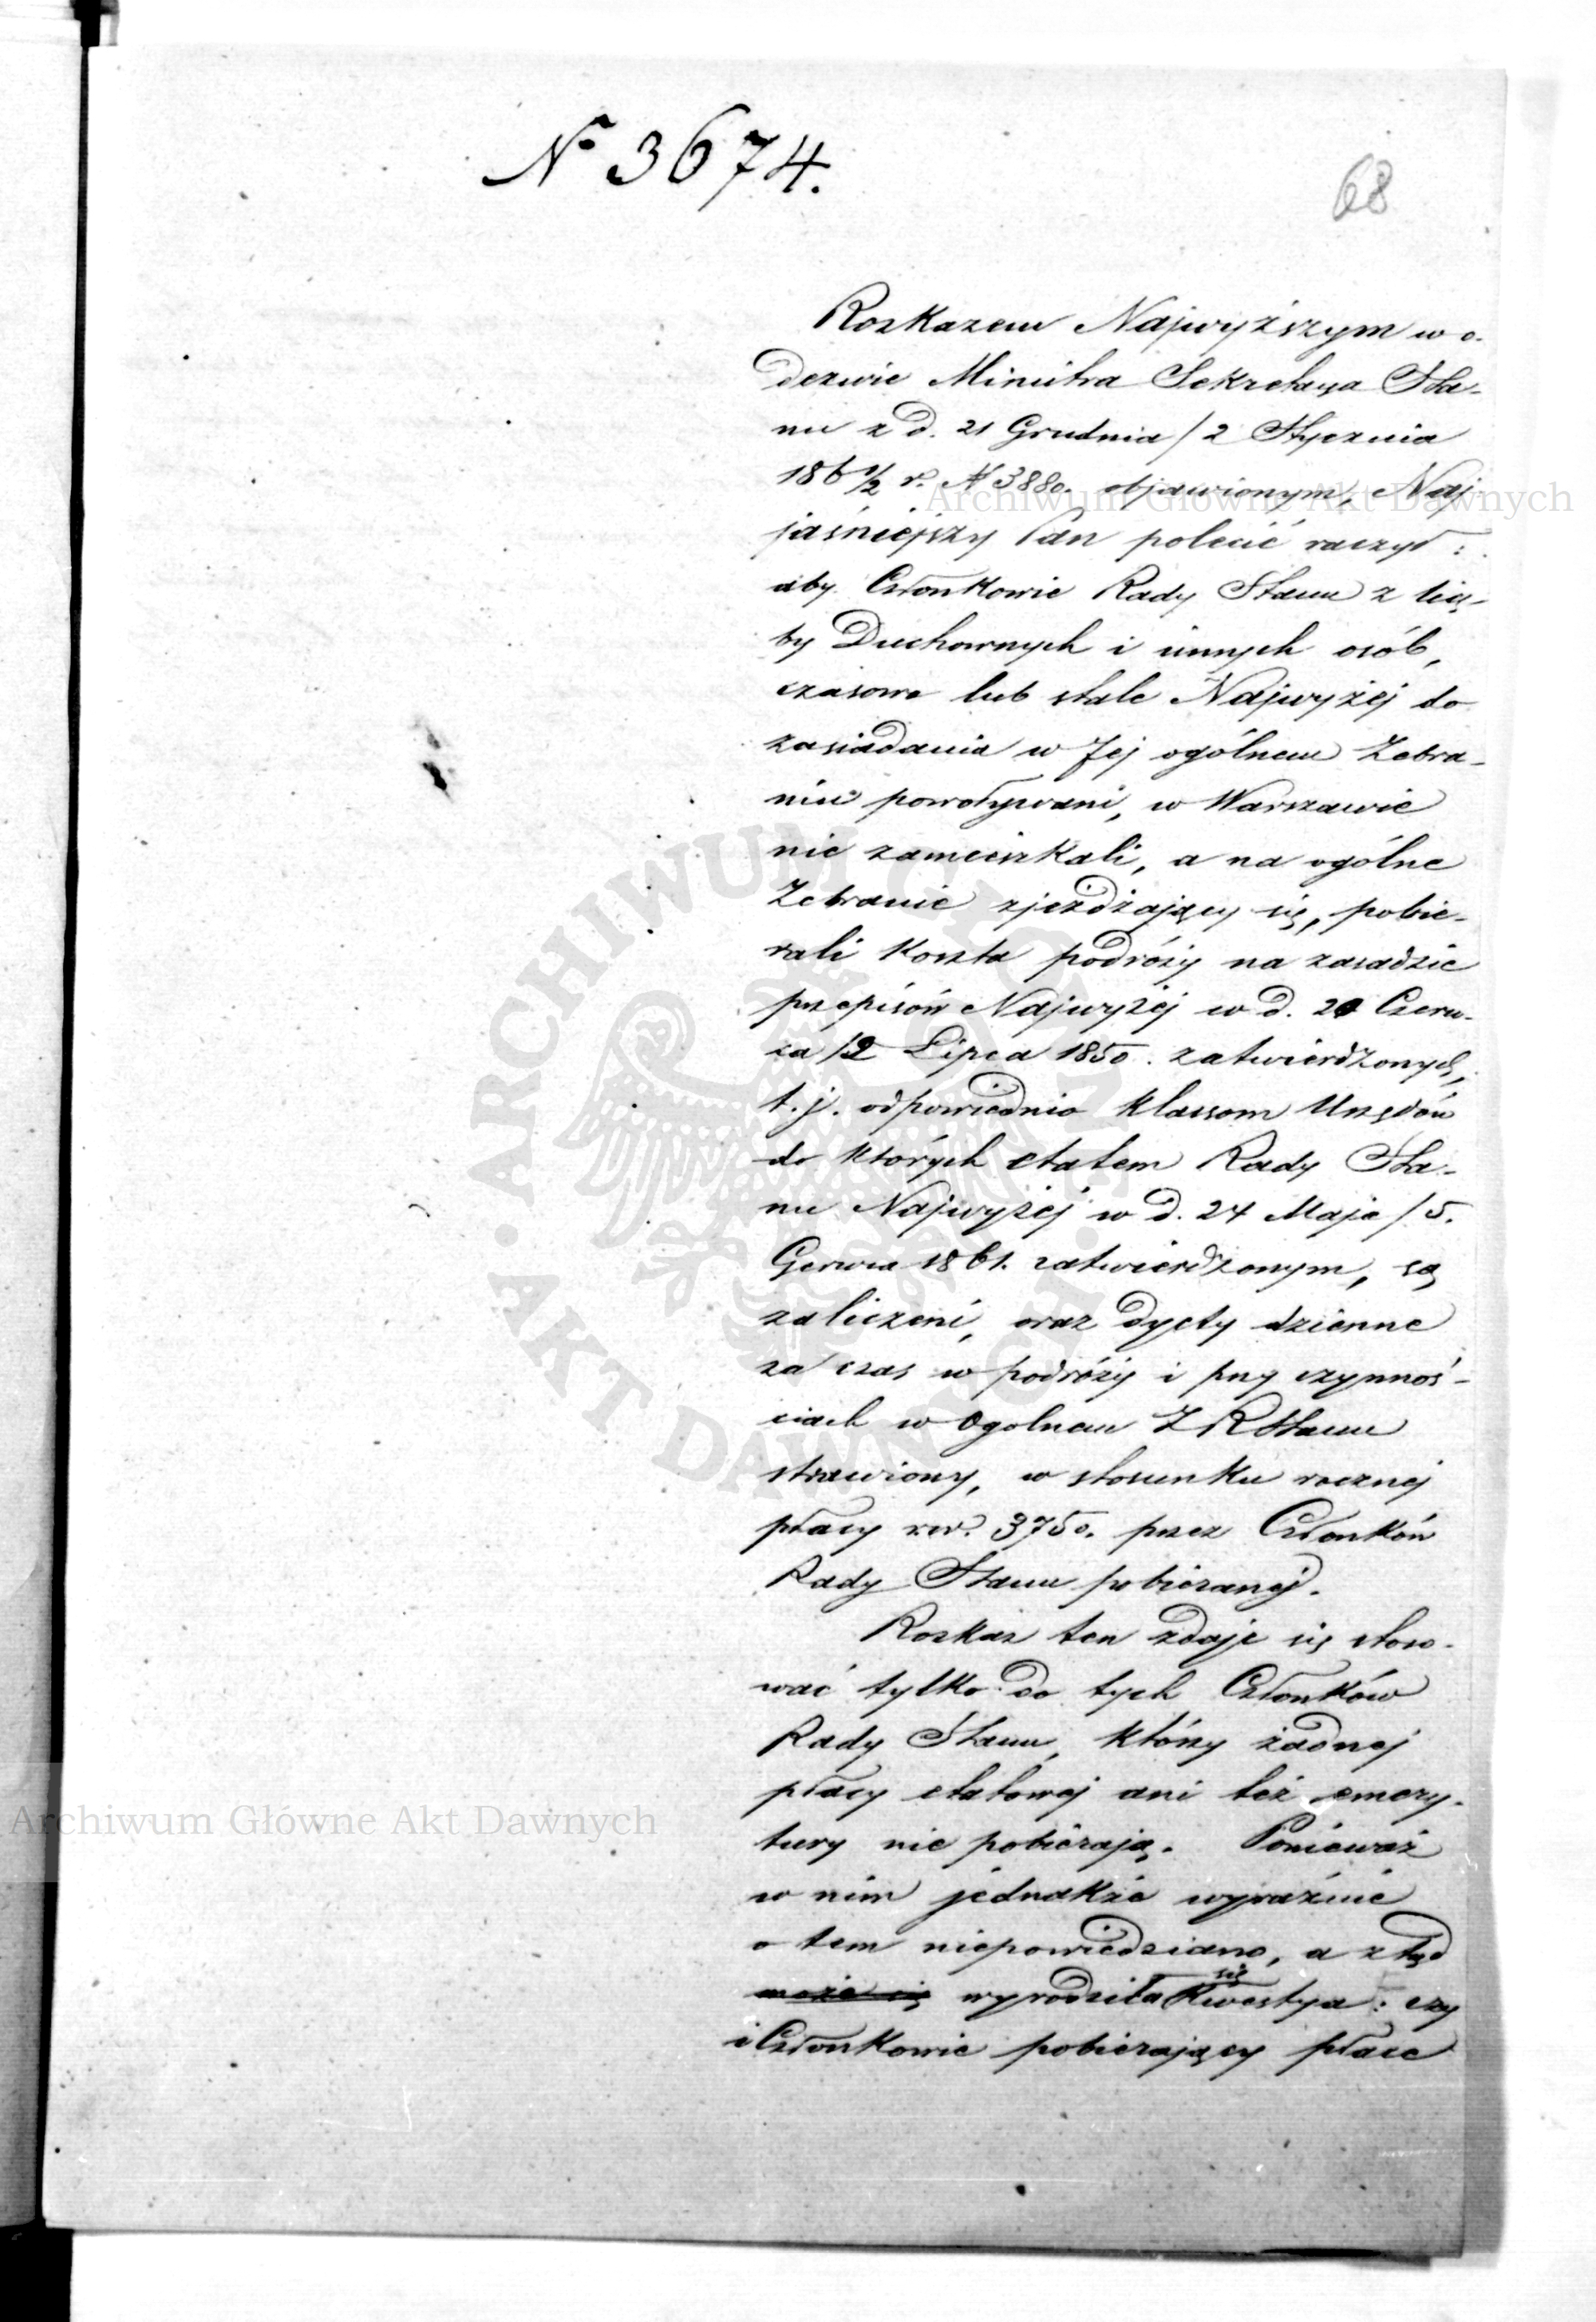 № 3674.
68
Rozkazem Najwyższym w o-
dezwie Ministra Sekretarza Sta-
nu z d. 21 Grudnia / 2 Stycznia
186 1/2 r. № 3880. objawionym, Naj-
jaśniejszy Pan polecić raczył:
aby Członkowie Rady Stanu z licz-
by Duchownych i innych osób,
czasowo lub stale Najwyżej do
zasiadania w Jej ogólnem Zebra-
niu powoływani, w Warszawie
nie zamieszkali, a na ogólne
Zebranie zjeżdżający się, pobie-
rali koszta podróży na zasadzie
przepisów Najwyżej w d. 20 Czerw-
ca / 2 Lipca 1850. zatwierdzonych,
t. j. odpowiednio klassom Urzędów
do których etatem Rady Sta-
nu Najwyżej w d. 24 Maja / 5.
Czerwca 1861. zatwierdzonym, są
zaliczeni, oraz dyety dzienne
za czas w podróży i przy czynnoś-
ciach w Ogolnem Z R Stanu
strawiony, w stosunku rocznej
płacy rsr. 3750. przez Członków
Rady Stanu pobieranej.
Rozkaz ten zdaje się stoso-
wać tylko do tych Członków
Rady Stanu, którzy żadnej
płacy etatowej ani też emery-
tury nie pobierają. Ponieważ
w nim jednakże wyraźnie
o tem niepowiedziano, a ztąd
może się wyrodziła się Kwestya: czy
i Członkowie pobierający płace
Archiwum Główne Akt Dawnych
Archiwum Główne Akt Dawnych
ARCHIWUM GŁÓWNE AKT DAWNYCH